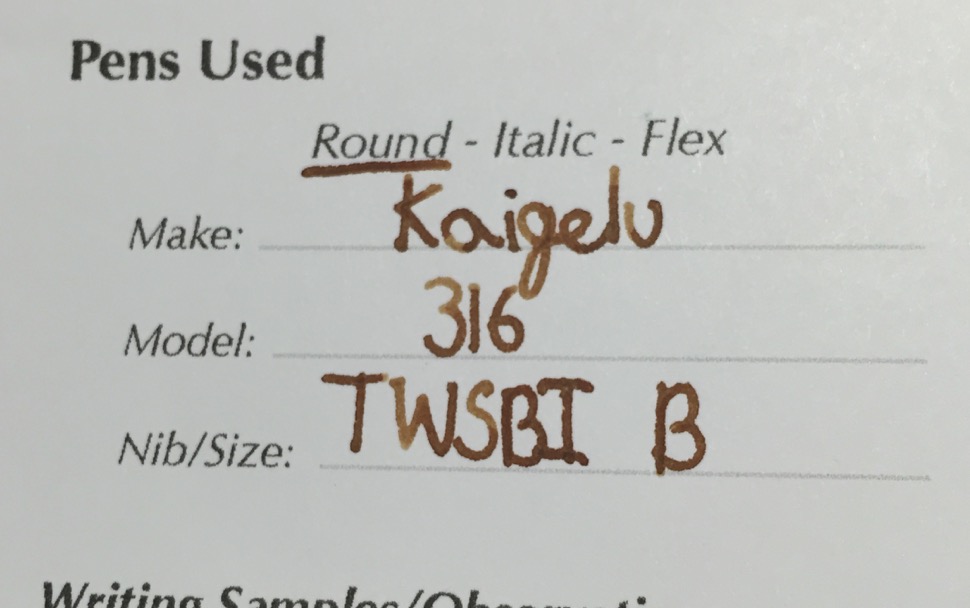 Pens Used
Round - Italic - Flex
Make: Kaigelu
Model: 316
Nib/Size: TWSBI B
Writing Samples/Observati